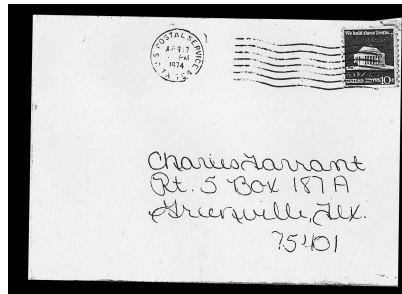 U.S. POSTAL SERVICE
APR 17
PM
1974
TX 754
We hold these Truths...
10c
Charles Tarrant
Rt. 5 Box 187A
Greenville, Tex.
75401